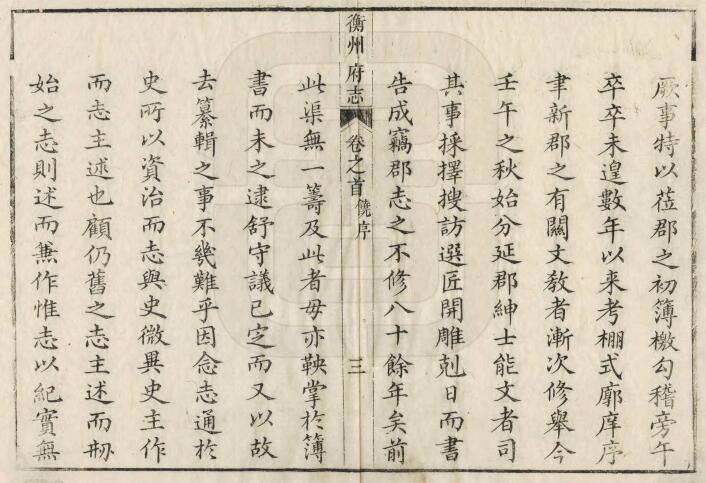 厥事特以莅郡之初簿檄勾稽旁午
卒卒未遑數年以來考棚式廓庠序
聿新郡之有關文敎者漸次修舉今
壬午之秋始分延郡紳士能文者司
其事採擇搜訪選匠開雕剋日而書
告成竊郡志之不修八十餘年矣前
衡州府志
卷之首饒序
三
此渠無一籌及此者毋亦鞅掌於簿
書而未之逮舒守議已定而又以故
去纂輯之事不幾難乎因念志通於
史所以資治而志與史微異史主作
而志主述也顧仍舊之志主述而刱
始之志則述而兼作惟志以紀實無